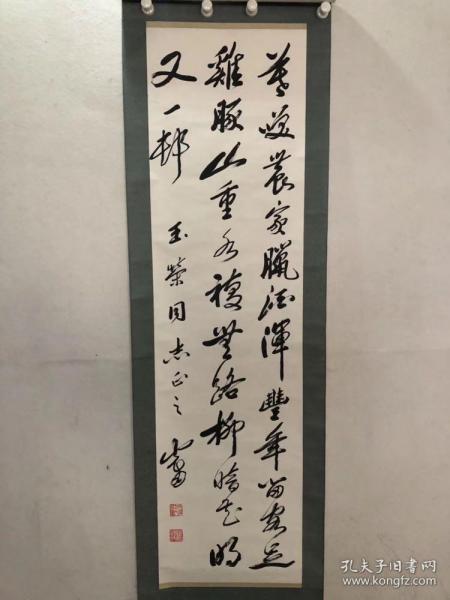 莫笑農家臘酒渾豐年留客足
雞豚山重水複無路柳暗花明
又一邨
玉榮同志正之
孔夫子旧书网
www.kongfz.com